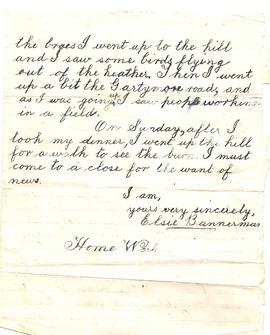 the braes I went up to the hill
and I saw some birds flying
out of the heather. Then I went
up a bit the Gartymore road, and
as I was going I saw people working
in a field.
On Sunday, after I
took my dinner, I went up the hill
for a walk to see the burn. I must
come to a close for the want of
news.
I am,
yours very sincerely,
Elsie Bannerman
Home Work